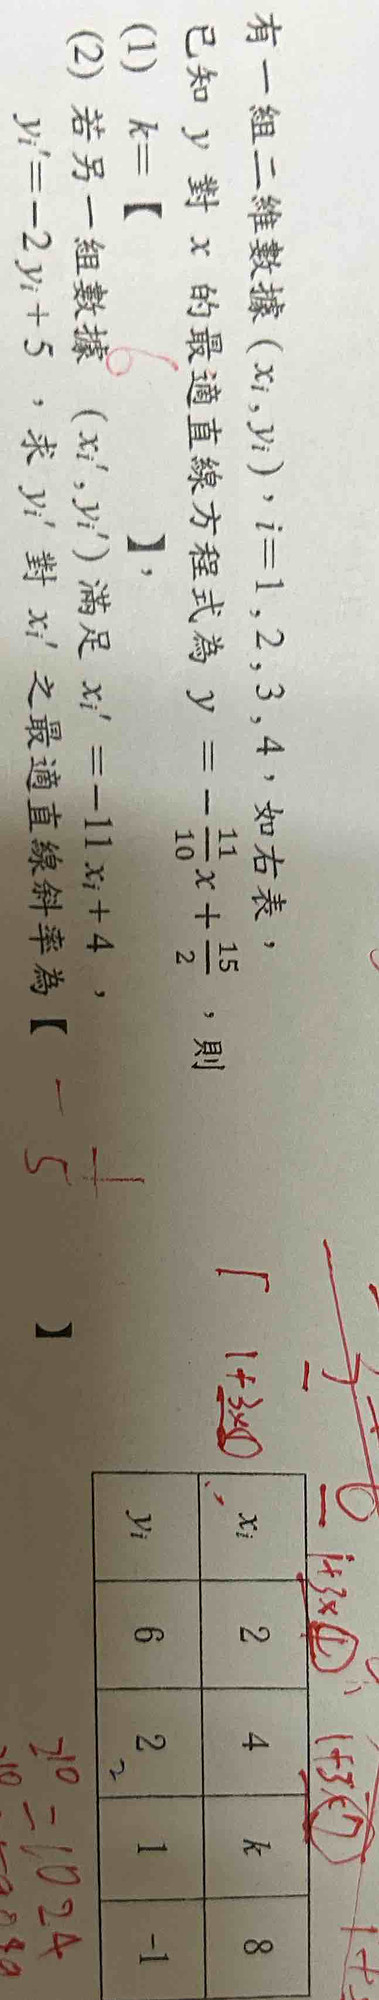 有一組二維數據 (xᵢ, yᵢ), i=1, 2, 3, 4, 如右表,
已知 y 對 x 的最適直線方程式為 y = -11/10 x + 15/2, 則
(1) k=【 6 】,
(2) 若另一組數據 (xᵢ', yᵢ') 滿足 xᵢ' = -11xᵢ + 4,
yᵢ' = -2yᵢ + 5, 求 yᵢ' 對 xᵢ' 之最適直線斜率為【 -1/5 】
xᵢ 2 4 k 8
yᵢ 6 2 1 -1
2
1+3×
1+3×
2¹⁰ = 1024